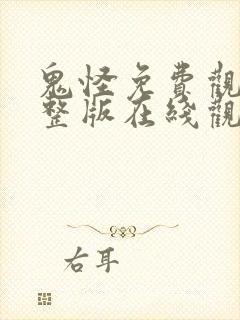 鬼怪免費觀
整版在线觀
右耳